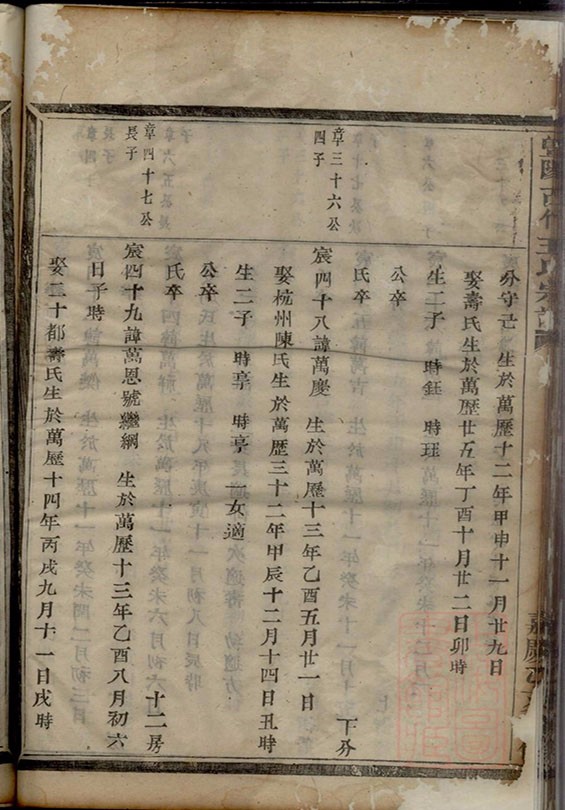 分守己 生於萬歷十二年甲申十一月廿九日
娶壽氏生於萬歷廿五年丁酉十月廿二日卯時
生二子 時鈺 時珏
公卒
氏卒 下分
章三十六公
四子
宸四十八諱萬慶 生於萬歷十三年乙酉五月廿一日
娶杭州陳氏生於萬歷三十二年甲辰十二月十四日丑時
生二子 時亭 時亨 一女適
公卒
氏卒 十二房
章四十七公
長子
宸四十九諱萬恩號繼綱 生於萬歷十三年乙酉八月初六
日子時
娶二十都壽氏生於萬歷十四年丙戌九月十一日戌時